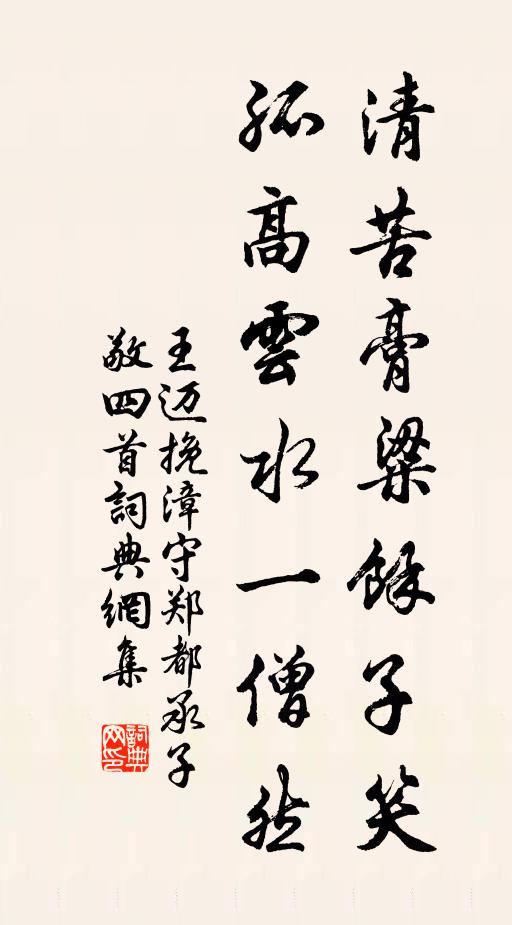 清苦膏粱餘子笑
孤高雲水一僧然
王迈挽漳守郑都承子
敬四首詞典網集
詞典網印